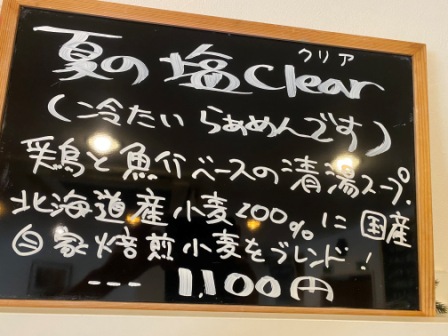 夏の塩Clear
クリア
(冷たい らぁめんです)
鶏と魚介ベースの清湯スープ.
北海道産小麦200%に国産
自家焙煎小麦をブレンド!
--- 1,100円